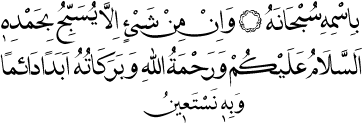 بِاسْمِهِ سُبْحَانَهُ ۞ وَاِنْ مِنْ شَيْءٍ اِلَّا يُسَبِّحُ بِحَمْدِهِ
اَلسَّلَامُ عَلَيْكُمْ وَرَحْمَةُ اللهِ وَبَرَكَاتُهُ اَبَدًا دَائِمًا
وَبِهِ نَسْتَعِينُ